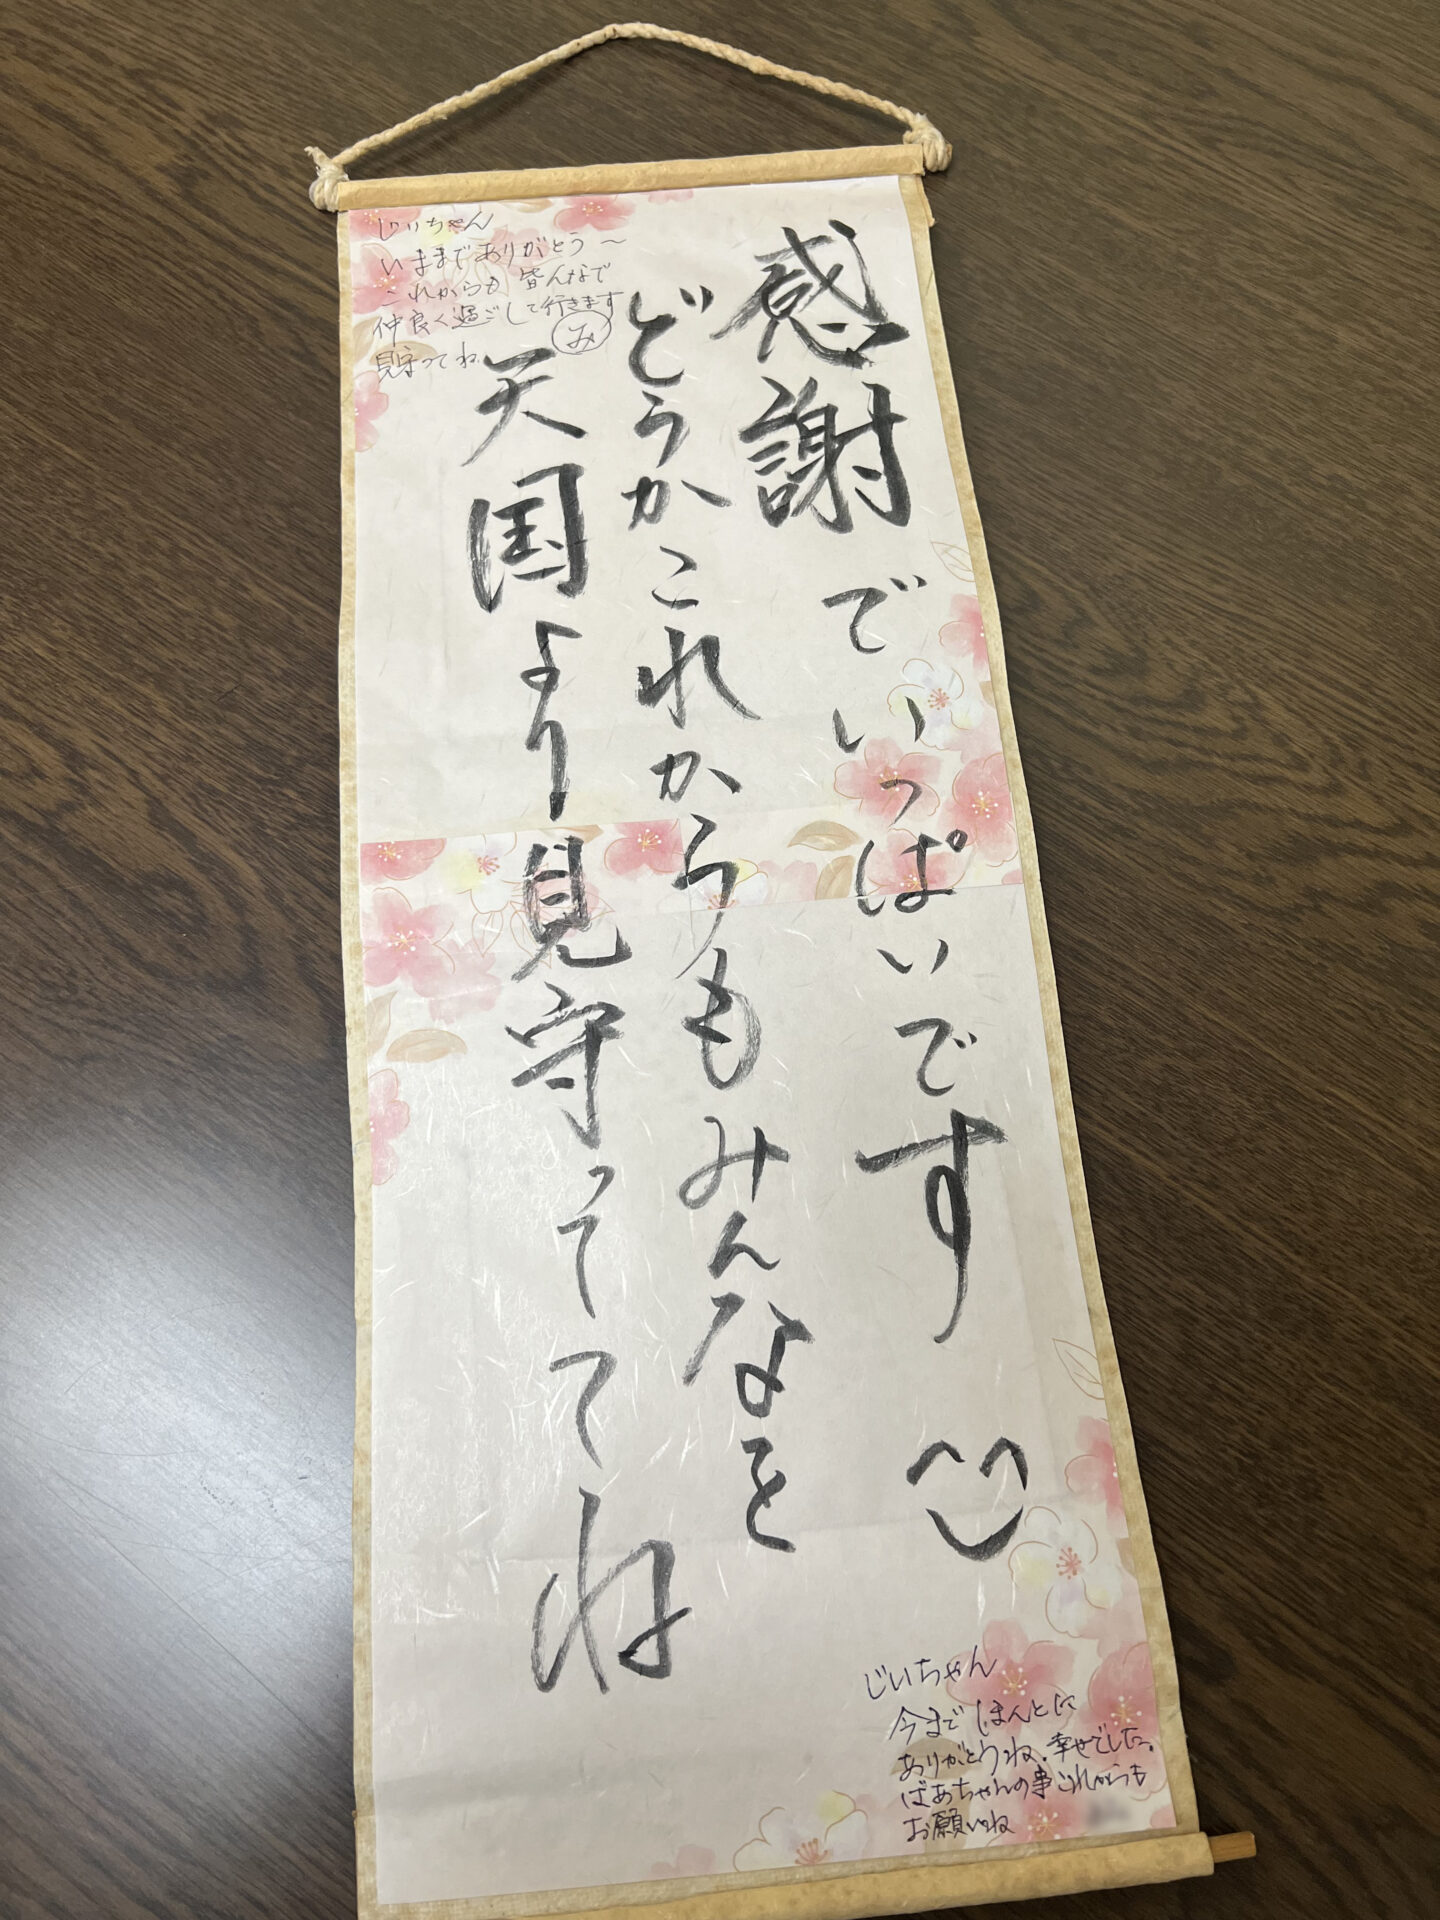 感謝でいっぱいです
どうかこれからもみんなを
天国より見守っててね
じいちゃん
いままでありがとう〜
これからも皆んなで
仲良く過ごして行きます
見守ってね
み
じいちゃん
今までほんとに
ありがとうね。幸せでした。
ばあちゃんの事これからも
お願いね